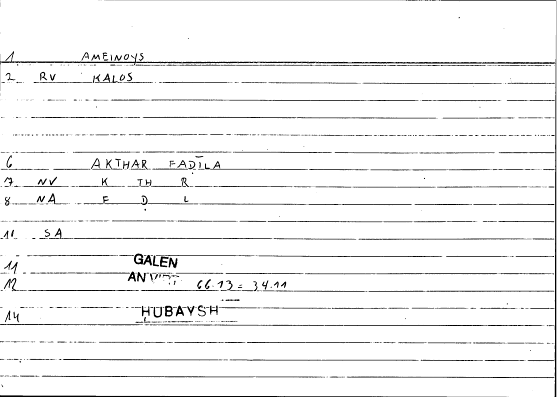 1 AMEINOYS
2 RV KALOS
6 AKTHAR FADĪLA
7 NV K TH R
8 NA F Ḍ L
11 SA
11 GALEN
12 AN 66.13 = 34.11
14 HUBAYSH